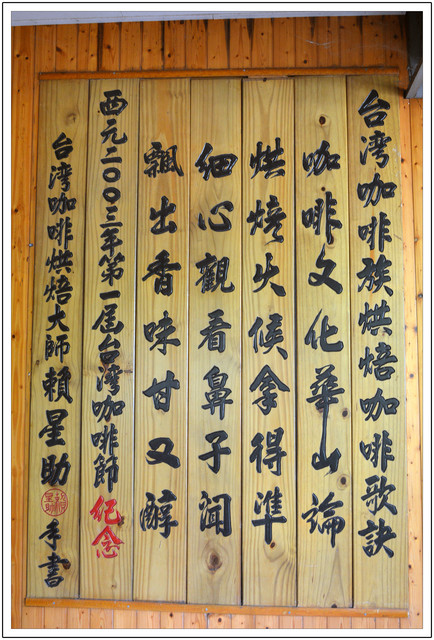 台湾咖啡族烘焙咖啡歌訣
咖啡文化華山論
烘焙火候拿得準
細心觀看鼻子聞
飄出香味甘又醇
西元二00三年第一届台湾咖啡節紀念
台湾咖啡烘焙大師賴星助 手書